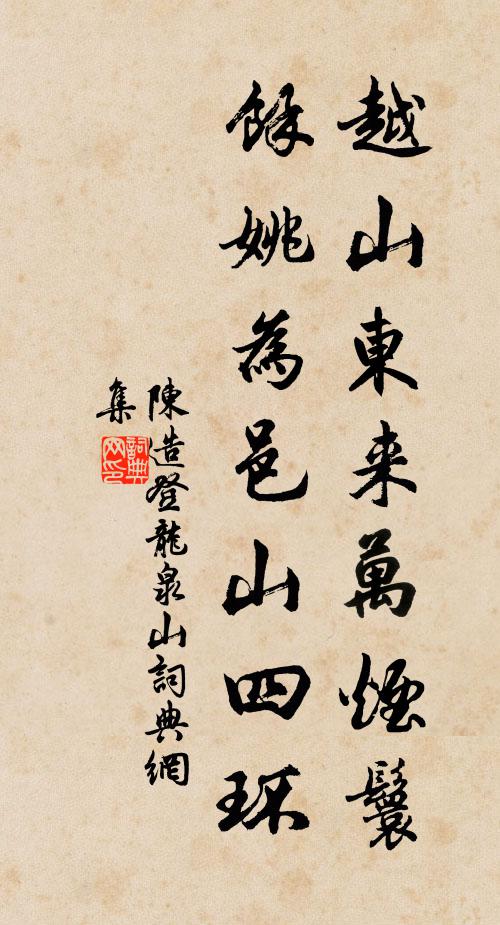 越山東来萬煙鬟
餘姚為邑山四环
陳造登龍泉山詞典網
集
詞典
网印